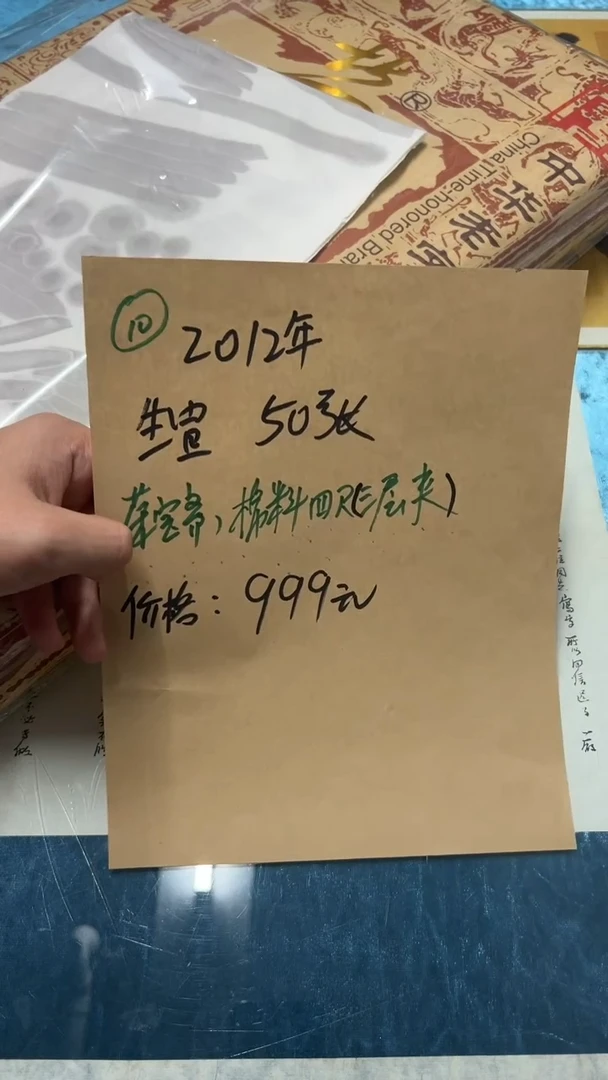 ®
China Time-honored Bra
中华老字
⑩ 2012年
生宣 50张
荣宝斋，棉料四尺(三层夹)
价格：999元